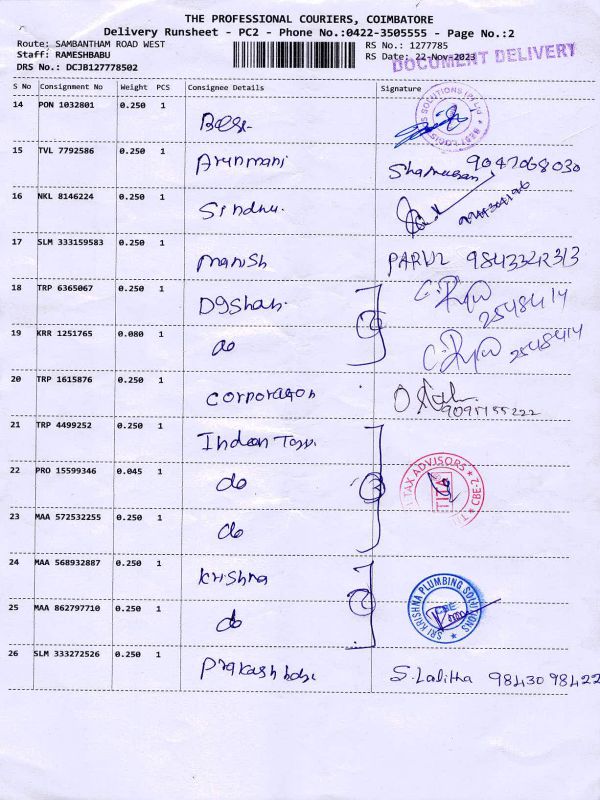 THE PROFESSIONAL COURIERS, COIMBATORE
Delivery Runsheet - PC2 - Phone No.:0422-3505555 - Page No.:2
Route: SAMBANTHAM ROAD WEST RS No.: 1277785
Staff: RAMESHBABU RS Date: 22-Nov-2023
DRS No.: DCJB127778502 DOCUMENT DELIVERY
S No Consignment No Weight PCS Consignee Details Signature
14 PON 1032801 0.250 1
15 TVL 7792586 0.250 1 Arunmani 9047068030
16 NKL 8146224 0.250 1 Sindhu.
17 SLM 333159583 0.250 1 Manish PARUL 9843342313
18 TRP 6365067 0.250 1 2548414
19 KRR 1251765 0.080 1 do 2548414
20 TRP 1615876 0.250 1 corporation 9095155222
21 TRP 4499252 0.250 1
22 PRO 15599346 0.045 1 do 3 TAX ADVISORS * CBE-2
23 MAA 572532255 0.250 1 do
24 MAA 568932887 0.250 1 Krishna
25 MAA 862797710 0.250 1 do 2 SRI KRISHNA PLUMBING SOLUTIONS CBE
26 SLM 333272526 0.250 1 Prakash babu S. Lalitha 9843098422